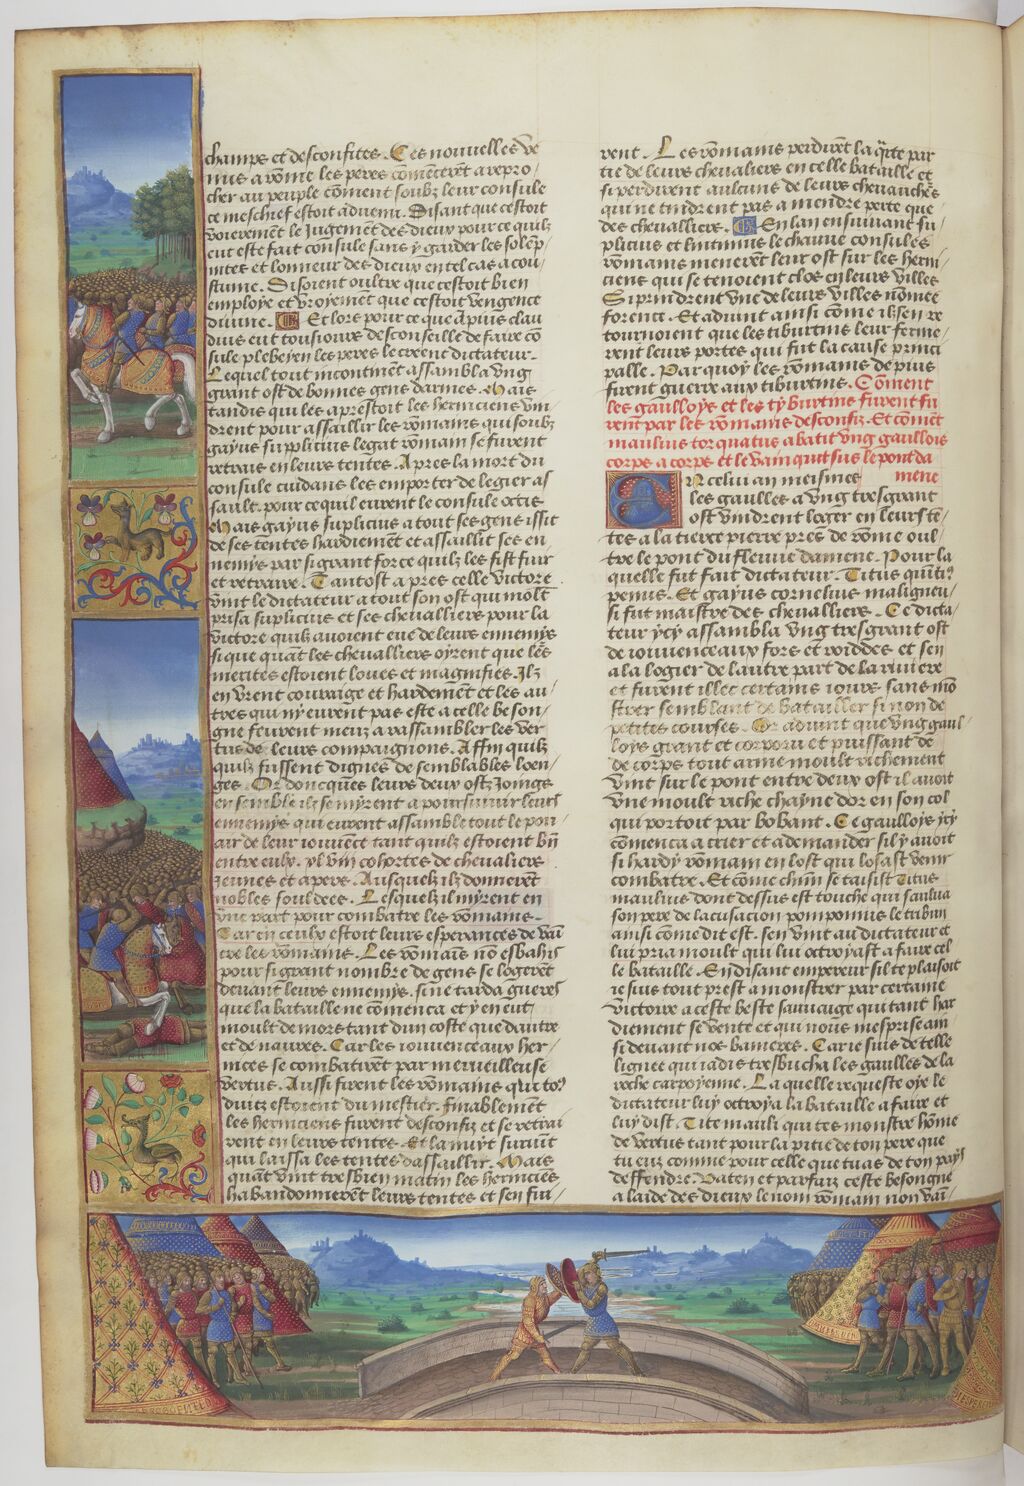 champs et desconfites. Ces nouvelles ve
nus a rõme les peres cõmẽcerẽt a repro
cher au peuple cõment soubz leur consule
ce meschief estoit advenu. Disant que cestoit
voirement le jugement des dieux pour ce quilz
eut este fait consule sans y garder les solẽp
nites et lonneur des dieux en tel cas acou
stume. Disoient oultre que cestoit bien
employe et vrayemẽt que cestoit vengence
divine. Et lors pour ce que Apius clau
dius eut tousiours desconseille de faire cõ
sule plebeyen les peres le creent dictateur.
Lequel tout incontinẽt assambla ung
grant ost de bonnes gens darmes. Mais
tandis quil les aprestoit les herniciens vin
drent pour assaillir les rõmains qui soubz
gayus supplicius legat rõmain se furent
retrais en leurs tentes. Apres la mort du
consule cuidans les emporter de legier as
sault. pour ce quil eurent le consule ochis
Mais gayus suplicius a tout ses gens issit
de ses tentes hardiement et assaillit ses en
nemys par si grant force quilz les fist fuir
et retraire. Tantost apres celle victore
vint le dictateur a tout son ost qui molt
prisa suplicius et ses chevalliers pour la
victore quilz avoient eue de leurs ennemys
si que quãt les chevalliers oyrent que leurs
merites estoient loues et magnifies. Ilz
en vrent couraige et hardement et les au
tres qui ny eurent pas este a celle beson
gne feurent meuz a rassambler les ver
tus de leurs compaignons. Affin quilz
quilz fussent dignes de semblables loen
ges. Or doncques leurs deux ostz joings
en semble ilz se myrent a poursuivir leurs
ennemys qui eurent assamble tout le pou
air de leur iouvence tant quilz estoient bñ
entre eulx. viii cohortes de chevaliers
jeunes et apers. Ausquelz ilz donnerẽt
nobles souldees. Lesquelz il myrent en
une part pour combatre les rõmains.
Car en ceulx estoit leurs esperances de vaĩ
cre les rõmains. Les rõmais nõ esbahis
pour si grant nombre de gens se logerẽt
devant leurs ennemys. si ne tarda gueres
que la bataille ne cõmenca et y en eut
moult de mors tant dun coste que dautre
et de naures. Car les iouvenceaux her
nices se combatirẽt par merveilleuse
vertus. Aussi firent les rõmains qui to9
duitz estoient du mestier. finablement
les herniciens furent desconfiz et se retrai
rent en leurs tentes. Et la nuyt survint
qui laissa les tentes dassaillir. Mais
quãt vint tres bien matin les herniciẽs
habandonnerẽt leurs tentes et sen fui
rent. Les rõmains perdirẽt la q̃rte par
tie de leurs chevaliers en celle bataille et
si perdirent aulcuns de leurs chevauchẽs
qui ne tindrent pas a mendre perte que
des chevalliers. En lan ensuivant su
plicius et licinius le chauve consules
rõmains menerẽt leur ost sur les herni
ciens qui se tenoient clos en leurs villes
Si prindrent une de leurs villes nõmee
forence. Et advint ainsi cõme ilz sen re
tournoient que les tiburtins leur ferme
rent leurs portes qui fut la cause princi
palle. Par quoy les rõmains depuis
firent guerre aux tiburtins. Cõment
les gaulloys et les tyburtins furent fu
rent par les rõmains desconfiz. Et cõmẽt
maulius torquatus abatit ung gaullois
corps a corps et le vainquit sus le pont da
mene
En celui an meismes
les gaulles a ung tresgrant
ost vindrent loger en leurs tẽ
tes a la tierce pierre pres de rõme oul
tre le pont du fleuve damene. Pour la
quelle fut fait dictateur. Titus quiti9
penus. Et gayus cornelius maligneu
si fut maistre des chevalliers. Ce dicta
teur ycy assambla ung tresgrant ost
de iouvenceaux fors et roiddes et sen
ala logier de lautre part de la riviere
et furent illec certains iours sans mõ
strer semblant de batailler si non de
petites courses. Or advint que ung gaul
loys grant et corporu et puissant de
de corps tout arme moult richement
vint sur le pont entre deux ost il avoit
une moult riche chayne dor en son col
qui portoit par bobant. Ce gaulloys ycy
cõmenca a crier et a demander sil y avoit
si hardy rõmain en lost qui losast venir
combatre. Et cõme chun se taisist Titus
maulius dont dessus est touche qui saulva
son pere de lacusacion pomponius le tribun
ainsi cõme dit est. sen vint au dictateur et
lui pria moult qui lui octroyast a faire cel
le bataille. En disant empereur sil te plaisoit
ie suis tout prest a monstrer par certaine
victoire a ceste beste sauvaige qui tant har
diement se vente et qui nous mesprise ain
si devant nos banieres. Car ie suis de telle
lignee qui iadis tresbucha les gaulles de la
roche carpoyenne. La quelle requeste oye le
dictateur luy octroya la bataille a faire et
luy dist. Tite mauli qui tes monstre hõme
de vertus tant pour la pitie de ton pere que
tu euz comme pour celle que tu as de ton pays
deffendre. Vaten et parfais ceste besongne
a laide des dieux le nom rõmain non vaĩ